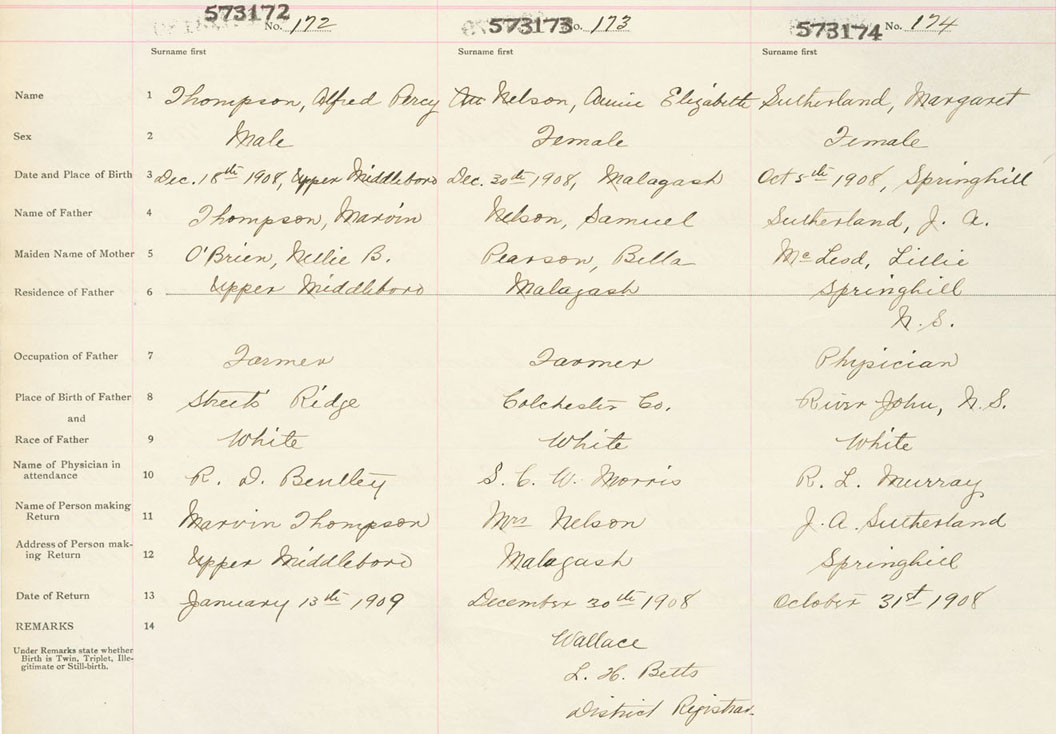 573172 No. 172 573173 No. 173 573174 No. 174
Surname first Surname first Surname first
Name 1 Thompson, Alfred Percy Nelson, Annie Elizabeth Sutherland, Margaret
Sex 2 Male Female Female
Date and Place of Birth 3 Dec. 18th 1908, Upper Middleboro Dec. 30th 1908, Malagash Oct 5th 1908, Springhill
Name of Father 4 Thompson, Marvin Nelson, Samuel Sutherland, J. A.
Maiden Name of Mother 5 O'Brien, Nellie B. Pearson, Bella McLeod, Lillie
Residence of Father 6 Upper Middleboro Malagash Springhill
N. S.
Occupation of Father 7 Farmer Farmer Physician
Place of Birth of Father 8 Streets Ridge Colchester Co. River John, N. S.
and
Race of Father 9 White White White
Name of Physician in
attendance 10 R. D. Bentley S. C. W. Morris R. L. Murray
Name of Person making
Return 11 Marvin Thompson Mrs Nelson J. A. Sutherland
Address of Person mak-
ing Return 12 Upper Middleboro Malagash Springhill
Date of Return 13 January 13th 1909 December 30th 1908 October 31st 1908
REMARKS 14
Under Remarks state whether
Birth is Twin, Triplet, Ille-
gitimate or Still-birth.
Wallace
L. H. Betts
District Registrar.